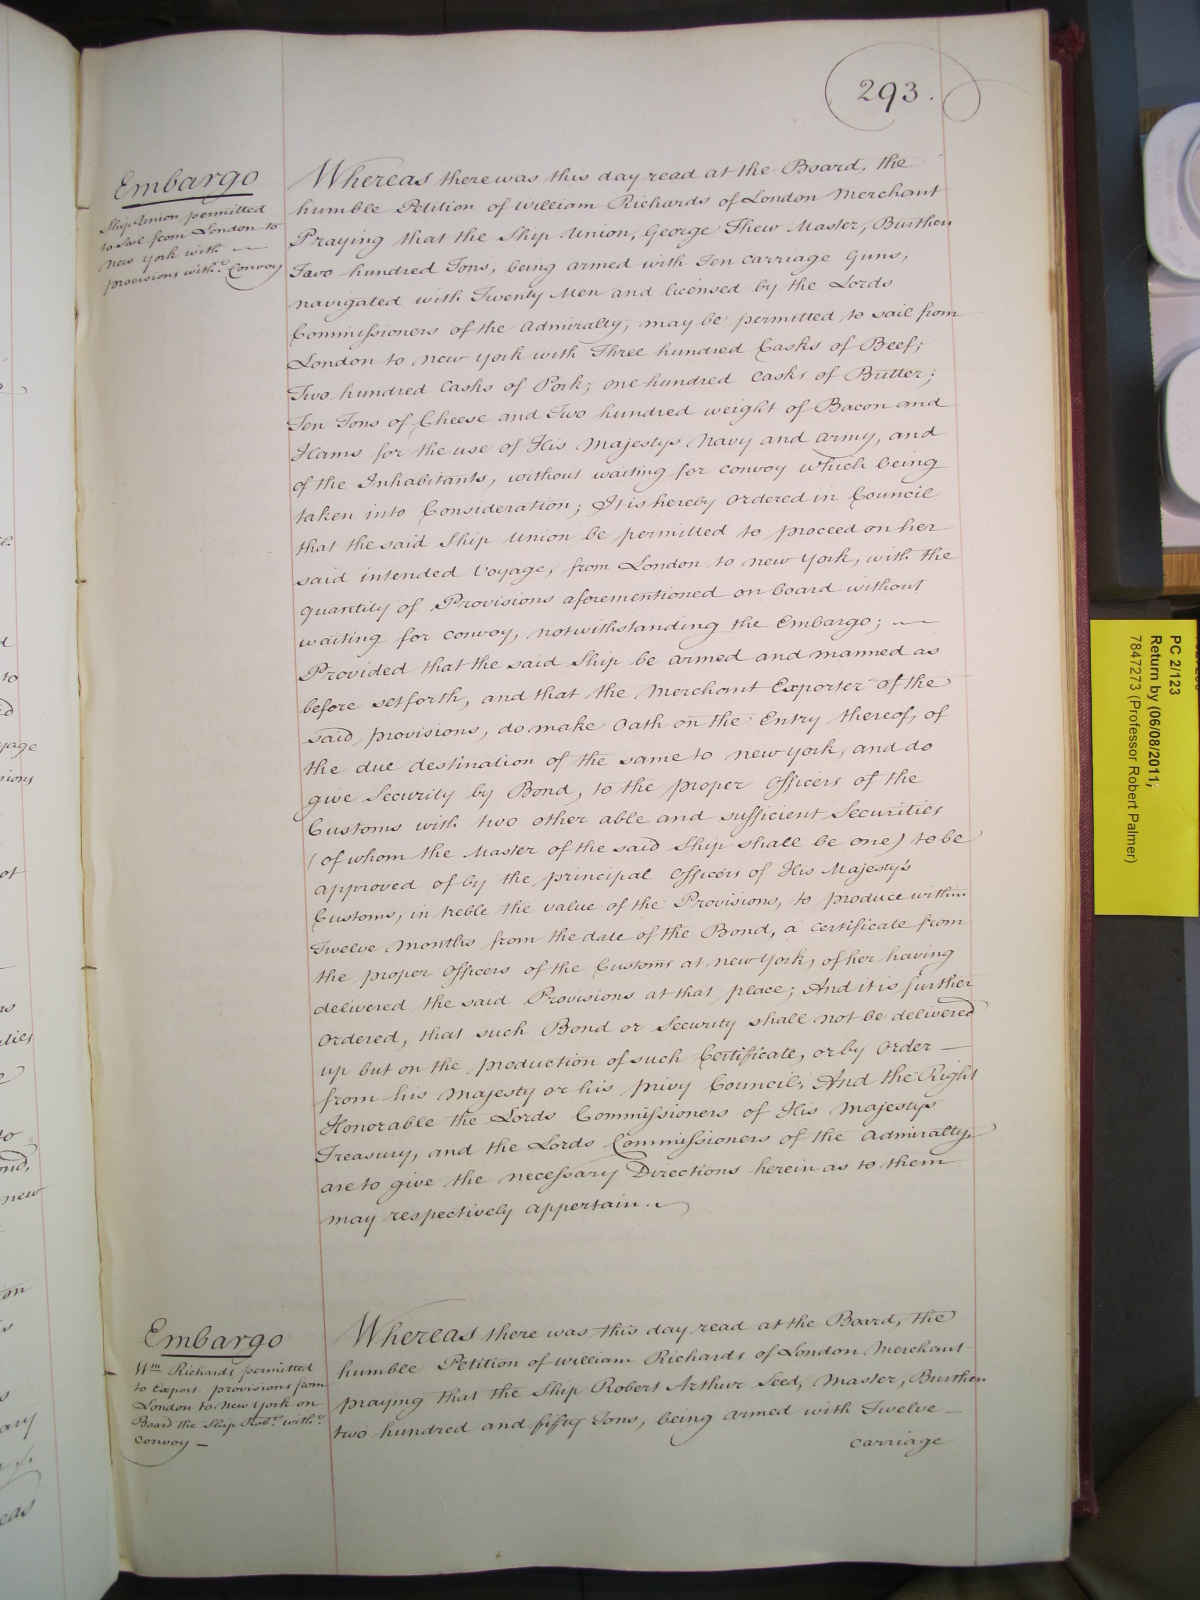 293.
Embargo
Ship Union permitted
to sail from London to
New York with —
provisions witht. Convoy
Whereas there was this day read at the Board, the
humble Petition of William Richards of London Merchant
Praying that the Ship Union, George Thew Master, Burthen
Two hundred Tons, being armed with Ten carriage Guns,
navigated with Twenty Men and licensed by the Lords
Commissioners of the Admiralty, may be permitted to sail from
London to New York with Three hundred Casks of Beef;
Two hundred Casks of Pork; one hundred Casks of Butter;
Ten Tons of Cheese and Two hundred weight of Bacon and
Hams for the use of His Majestys Navy and Army, and
of the Inhabitants, without waiting for convoy which being
taken into Consideration; It is hereby Ordered in Council
that the said Ship Union be permitted to proceed on her
said intended Voyage, from London to New York, with the
quantity of Provisions aforementioned on board without
waiting for convoy, notwithstanding the Embargo; —
Provided that the said Ship be armed and manned as
before setforth, and that the Merchant Exporter of the
said provisions, do make Oath on the Entry thereof, of
the due destination of the same to New York, and do
give Security by Bond, to the proper Officers of the
Customs with two other able and sufficient Securities
(of whom the Master of the said Ship shall be one) to be
approved of by the principal Officers of His Majesty's
Customs, in treble the value of the Provisions, to produce within
Twelve Months from the date of the Bond, a certificate from
the proper Officers of the Customs at New York, of her having
delivered the said Provisions at that place; And it is further
Ordered, that such Bond or Security shall not be delivered
up but on the production of such Certificate, or by Order —
from his Majesty or his privy Council; And the Right
Honorable the Lords Commissioners of His Majestys
Treasury, and the Lords Commissioners of the Admiralty,
are to give the necessary Directions herein as to them
may respectively appertain.
Embargo
Wm Richards permitted
to Export provisions from
London to New York on
Board the Ship Robt. witht.
Convoy —
Whereas there was this day read at the Board, the
humble Petition of William Richards of London Merchant
praying that the Ship Robert Arthur Seed, Master, Burthen
two hundred and fifty Tons, being armed with Twelve —
carriage
PC 2/123
Return by (06/08/2011;
7847273 (Professor Robert Palmer)